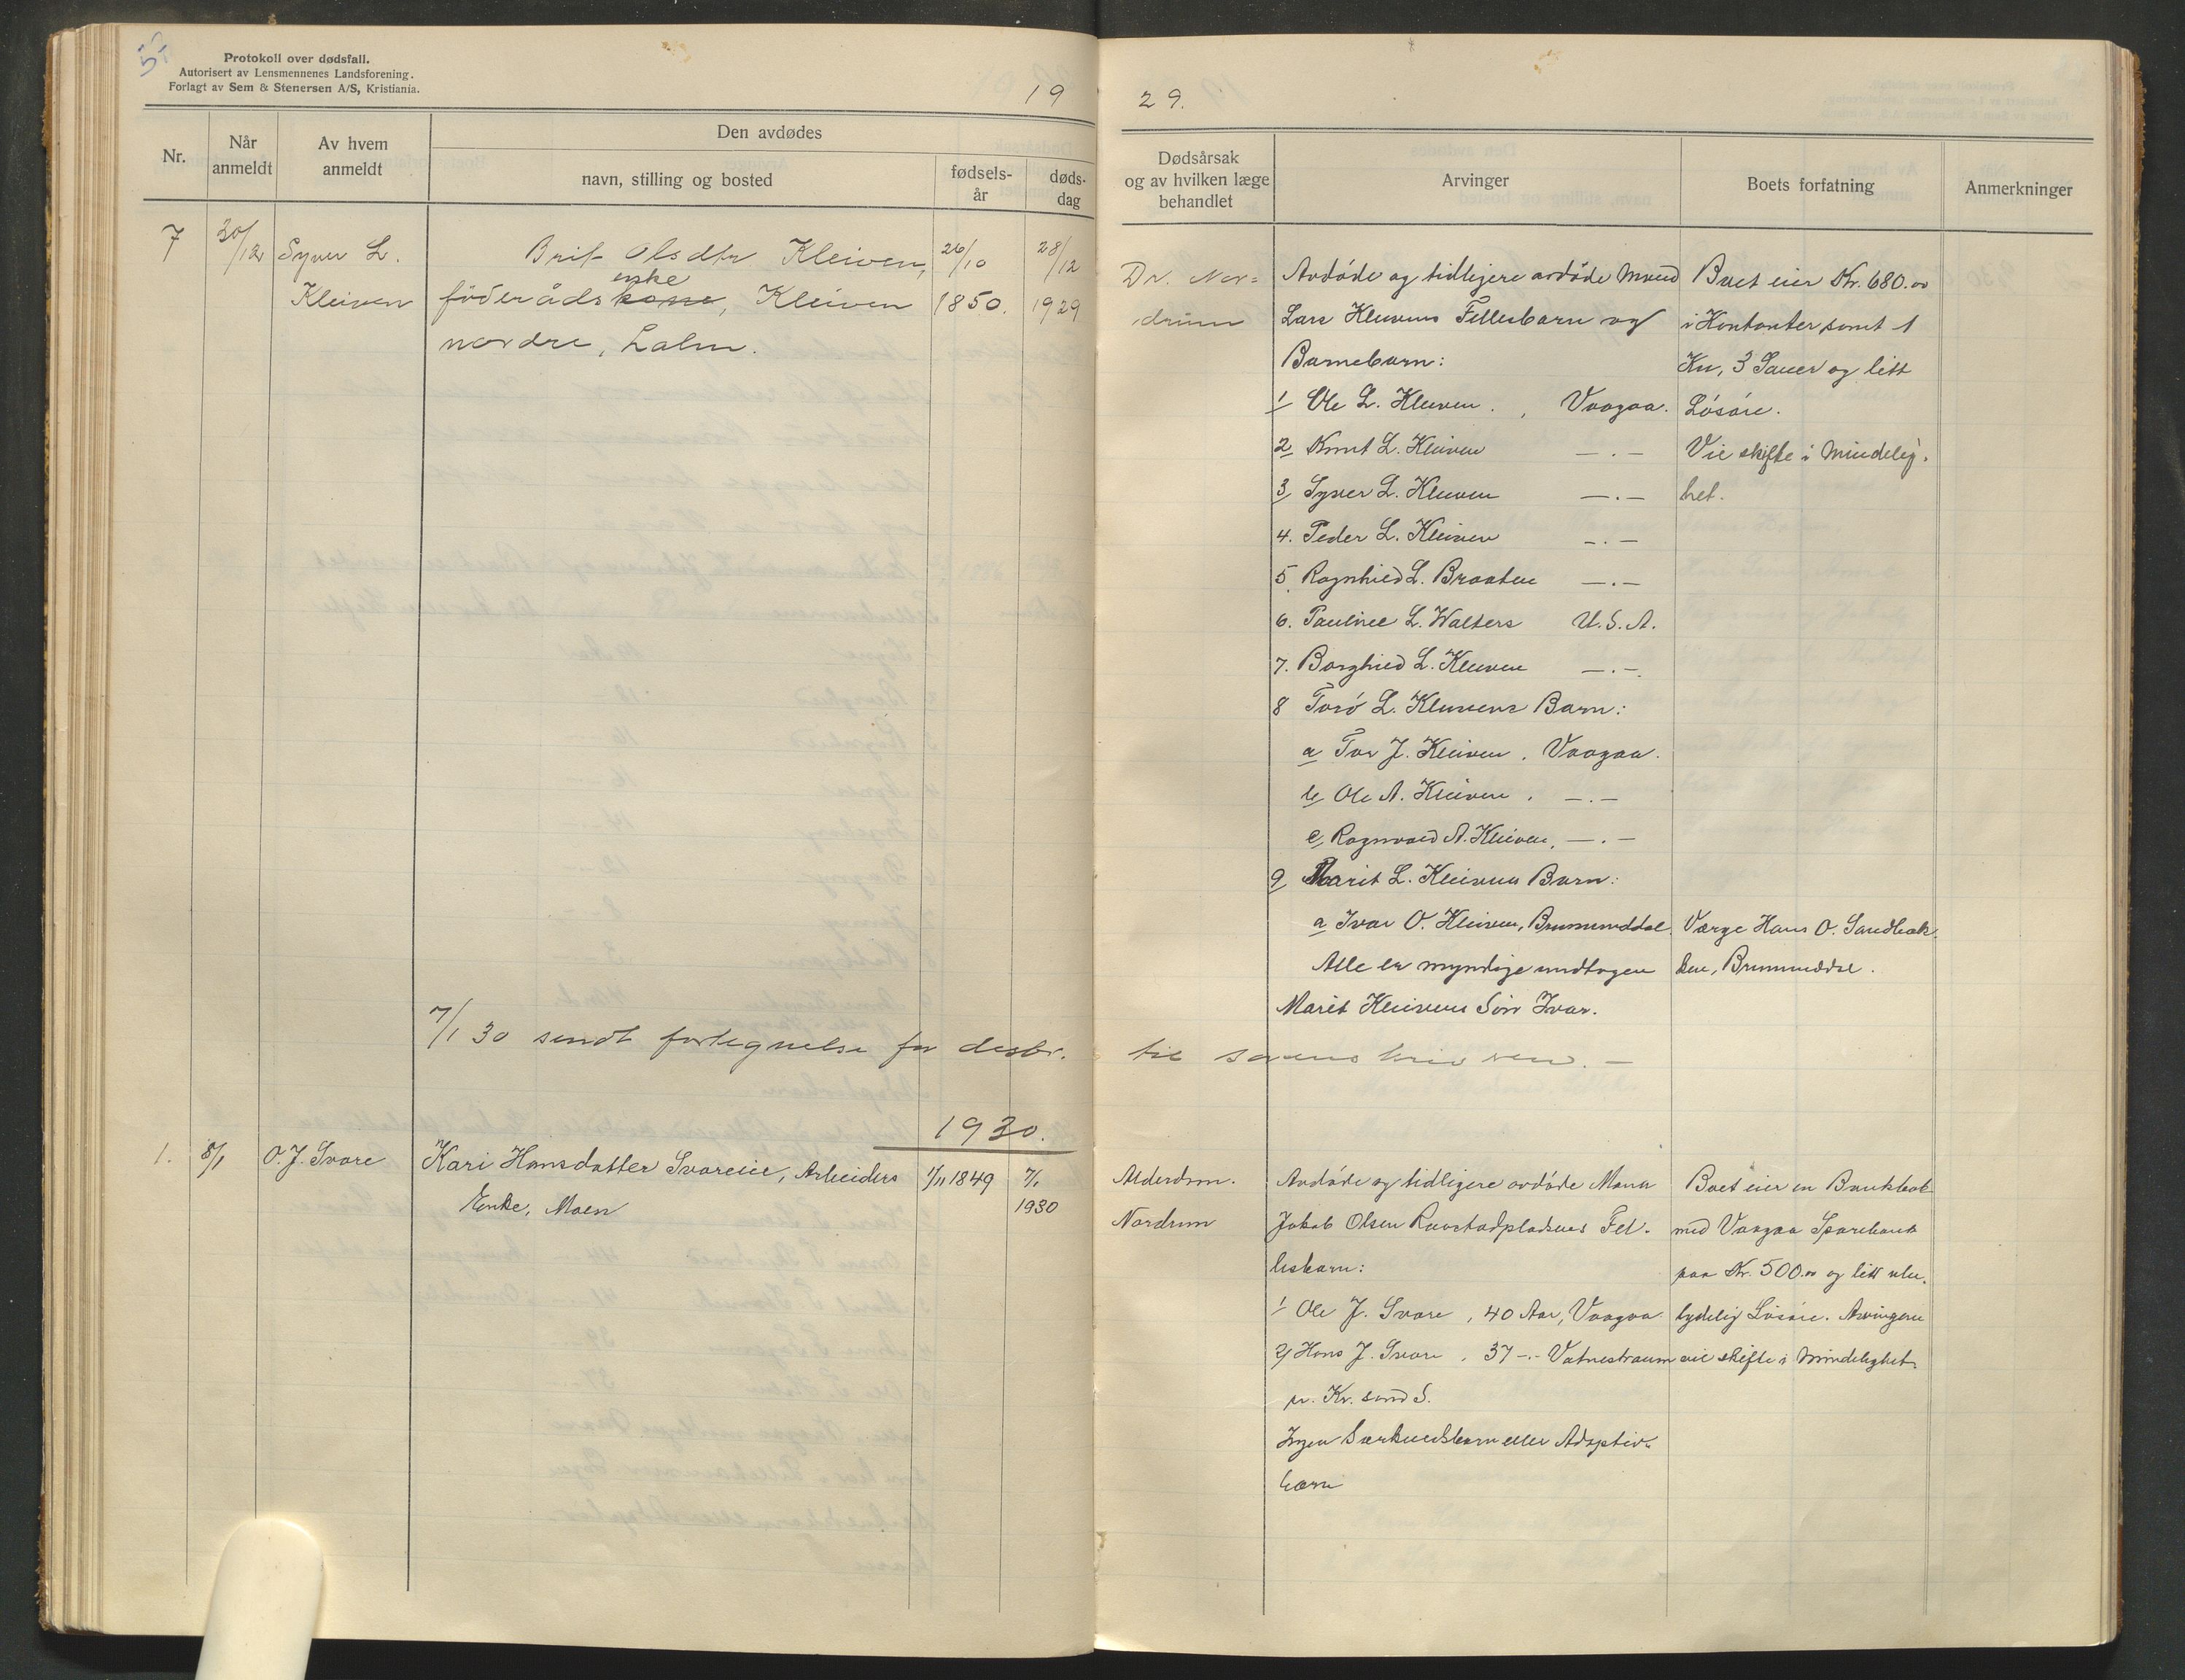 55
Protokoll over dødsfall.
Autorisert av Lensmennenes Landsforening.
Forlagt av Sem & Stenersen A/S, Kristiania.
19
Nr.
Når anmeldt
Av hvem anmeldt
Den avdødes
navn, stilling og bosted
fødsels-år
døds-dag
7
30/12
Syver L.
Kleiven
Brit Olsdtr Kleiven,
enke
föderåds kone, Kleiven
nordre, Lalm.
26/10
1850.
28/12
1929
7/1 30 sendt fortegnelse for desbr.
1930.
1.
8/1
O. J. Svare
Kari Hansdatter Svareie, Arbeiders
Enke, Moen
1/11 1849
7/1
1930
29.
Dødsårsak
og av hvilken læge
behandlet
Arvinger
Boets forfatning
Anmerkninger
Dr. Nor-
drum
Avdöde og tidligere avdöde Mand
Lars Kleivens Fellesbarn og
Barnebarn:
1/ Ole L. Kleiven . , Vaagaa.
2 Knut L. Kleiven —.—
3/ Syver L. Kleiven —.—
4. Peder L. Kleiven —.—
5. Ragnhild L. Braaten —.—
6. Pauline L. Walters U.S.A.
7. Borghild L. Kleiven —.—
8 Torö L. Kleivens Barn:
a Tor J. Kleiven . Vaagaa.
b/ Ole A. Kleiven . —.—
c/ Ragnvald A. Kleiven, —.—
9/ Marit L. Kleivens Barn:
a Ivar O. Kleiven, Brummuddal.
Alle er myndige undtagen
Marit Kleivens Sön Ivar.
Boet eier Kr. 680.00
i Kontanter samt 1
Ku, 3 Sauer og litt
Lösöre.
Vil skifte i Mindelig-
het.
Værge Hans O. Sandbak-
ken, Brummuddal.
til sorenskriveren. —
Alderdom.
Nordrum
Avdöde og tidligere avdöde Mann
Jakob Olsen Ravstadpladsens Fel-
lesbarn:
1/ Ole J. Svare , 40 Aar, Vaagaa
2/ Hans J. Svare . 37 -.- Vatnestraum
pr. Kr. sand S.
Ingen Særkuldsbarn eller Adoptiv-
barn
Boet eier en Bankbok
med Vaagaa Sparebank
paa Kr. 500.00 og litt ube-
tydelig Lösöre. Arvingene
vil skifte i Mindelighet.